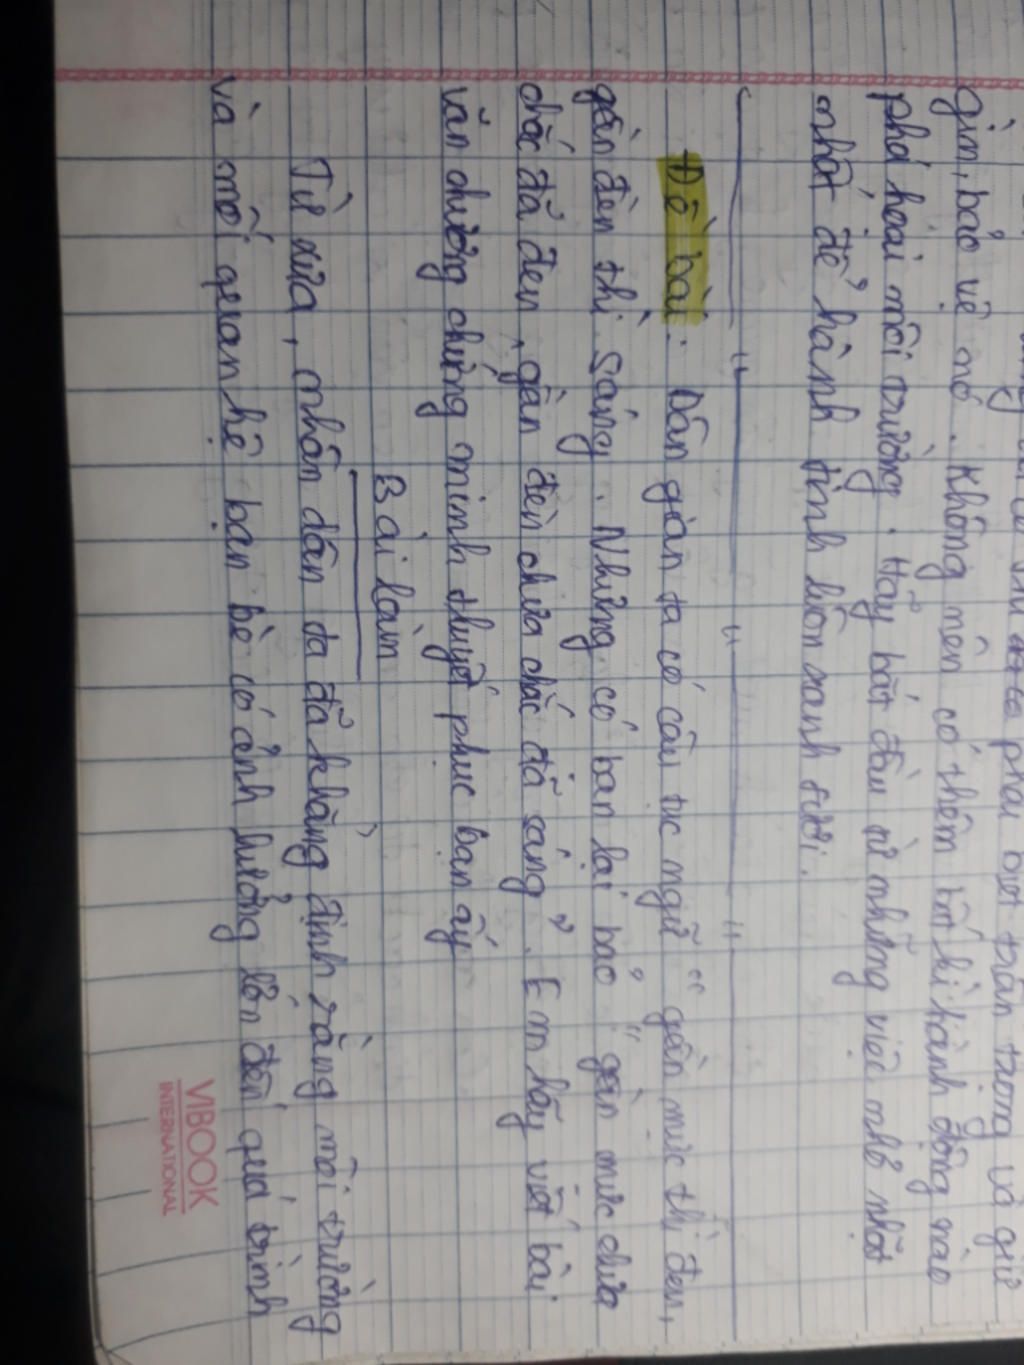 phải biết trân trọng và giữ
gìn, bảo vệ nó. Không nên có thêm bất kì hành động nào
phá hoại môi trường. Hãy bắt đầu từ những việc nhỏ nhất
nhất để hành tinh luôn xanh tươi.
Đề bài: Dân gian ta có câu tục ngữ "gần mực thì đen,
gần đèn thì sáng. Nhưng có bạn lại bảo "gần mực chưa
chắc đã đen, gần đèn chưa chắc đã sáng". Em hãy viết bài
văn chương chứng minh thuyết phục bạn ấy
Bài làm
Từ xưa, nhân dân ta đã khẳng định rằng môi trường
và mối quan hệ bạn bè có ảnh hưởng lớn đến quá trình
VIBOOK
INTERNATIONAL